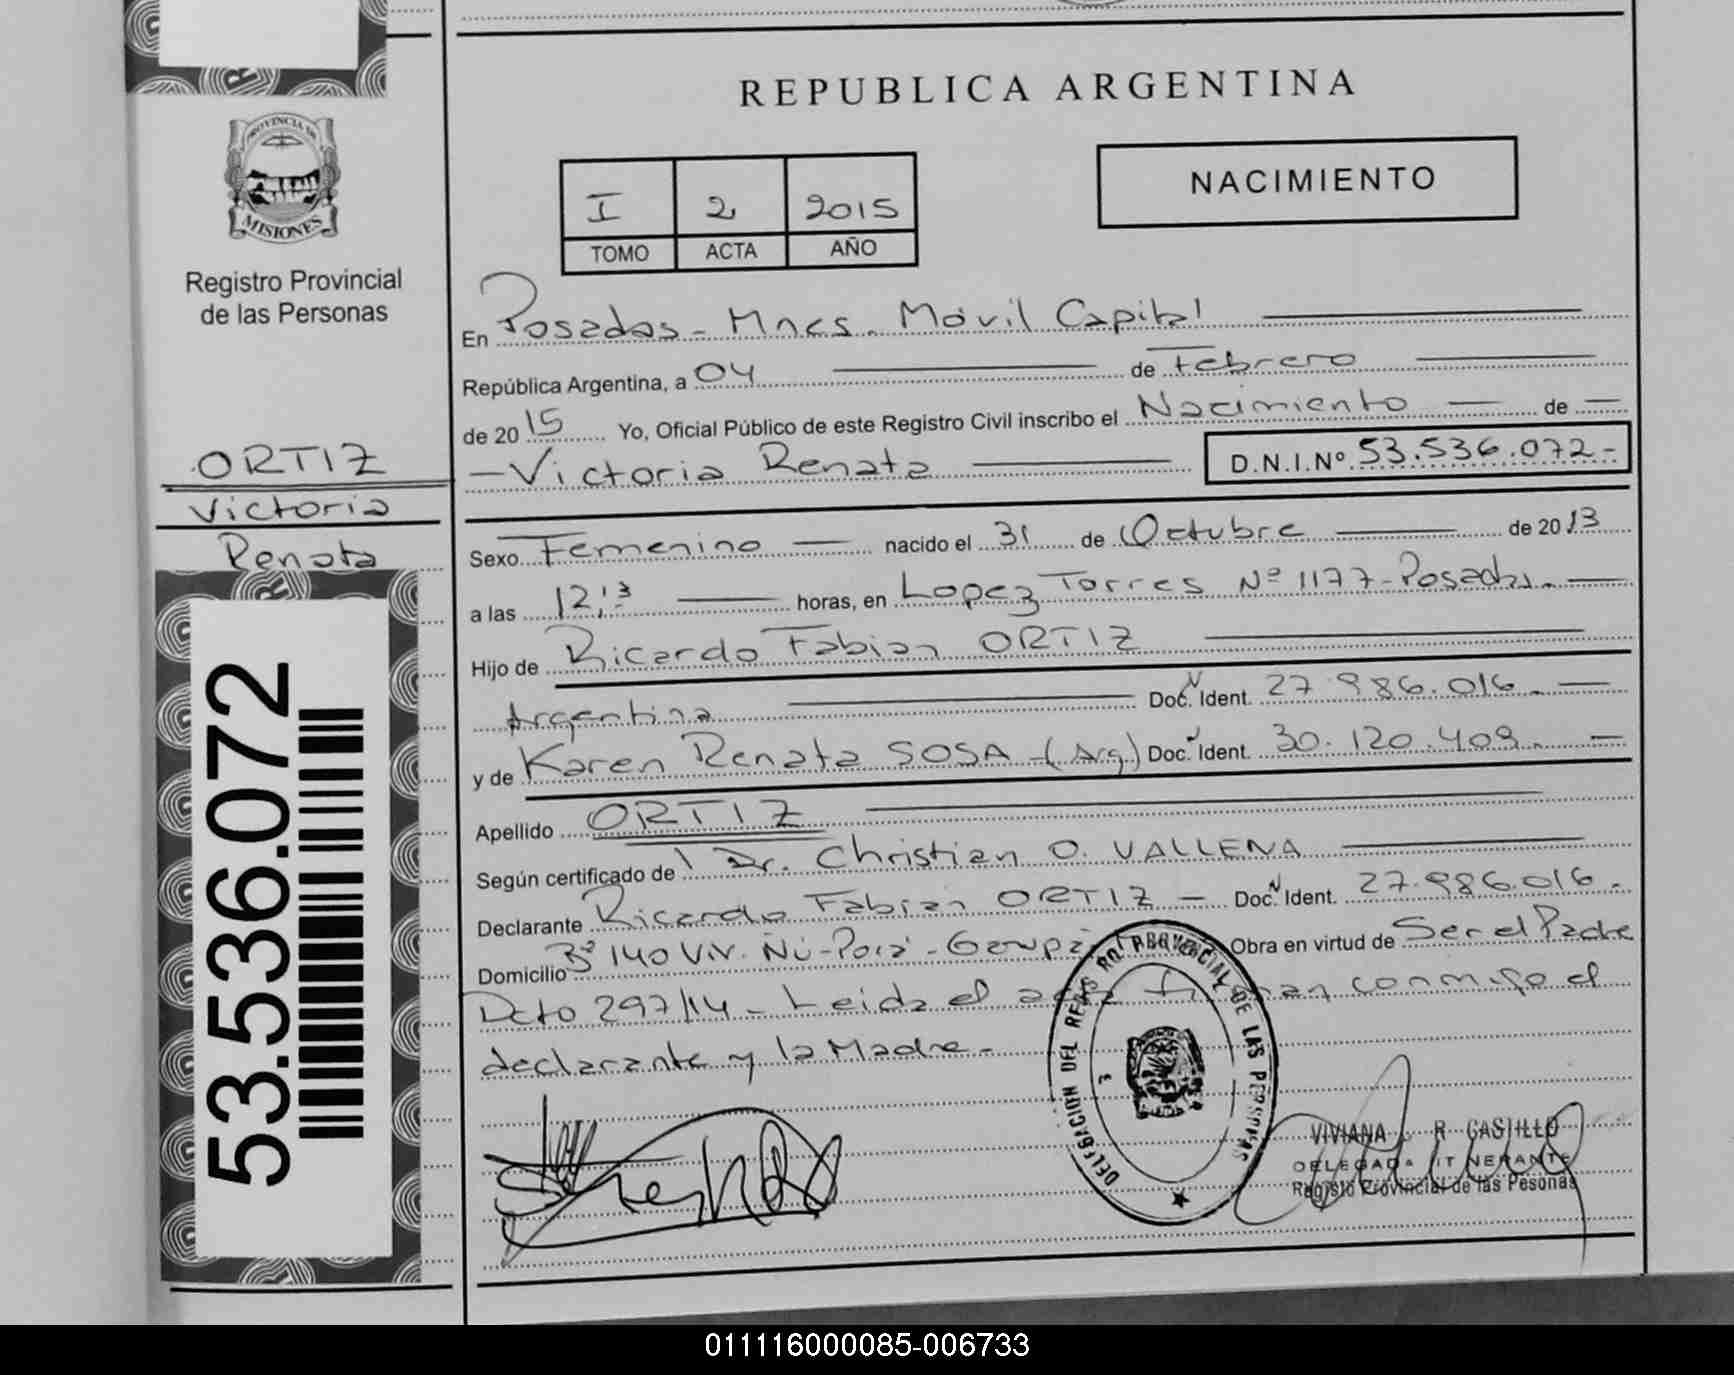 REPUBLICA ARGENTINA
NACIMIENTO
I 2 2015
TOMO ACTA AÑO
PROVINCIA DE
MISIONES
Registro Provincial
de las Personas
ORTIZ
Victoria
Renata
53.536.072
En Posadas - Mnes. Móvil Capital
República Argentina, a 04 de Febrero
de 2015 Yo, Oficial Público de este Registro Civil inscribo el Nacimiento — de —
— Victoria Renata D.N.I.Nº 53.536.072-
Sexo Femenino — nacido el 31 de Octubre de 2013
a las 12,13 horas, en Lopez Torres Nº 1177 - Posadas. —
Hijo de Ricardo Fabian ORTIZ
Argentina Doc. Ident. 27.986.016. —
y de Karen Renata SOSA (Arg) Doc. Ident. 30.120.409. —
Apellido ORTIZ
Según certificado de Dr. Christian O. VALLENA
Declarante Ricardo Fabian ORTIZ — Doc. Ident. 27.986.016.
Domicilio Bº 140 Viv. Ñu-Porá - Garupá Obra en virtud de Ser el Padre
Dcto 297/14 - Leida el acta firman conmigo el
declarante y la Madre.
DELEGACION DEL REG. PROVINCIAL DE LAS PERSONAS
VIVIANA R CASTILLO
DELEGADA ITINERANTE
Registo Provincial de las Pesonas
011116000085-006733